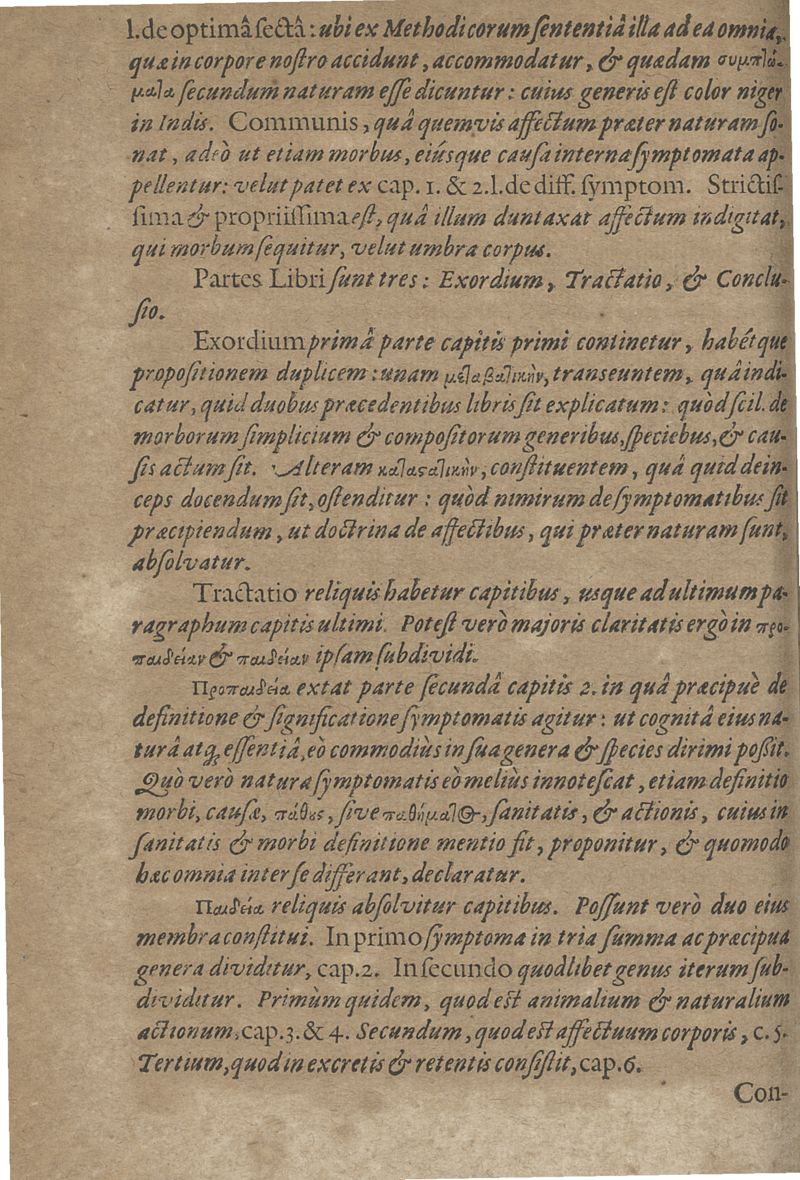 l. de optimâ sectâ: ubi ex Methodicorum sententiâ illa ad ea omnia,
quæ in corpore nostro accidunt, accommodatur, & quædam συμπλώ-
μαlα secundum naturam esse dicuntur: cuius generis est color niger
in Indis. Communis, quâ quemvis affectum præter naturam so-
nat, adeò ut etiam morbus, eiúsque causa interna symptomata ap-
pellentur: velut patet ex cap. 1. & 2. l. de diff. symptom. Strictis-
sima & propriissima est, quâ illum duntaxat affectum indigitat,
qui morbum sequitur, velut umbra corpus.
Partes Libri sunt tres: Exordium, Tractatio, & Conclu-
sio.
Exordium primâ parte capitis primi continetur, habétque
propositionem duplicem: unam μεlαβαlικὴν, transeuntem, quâ indi-
catur, quid duobus præcedentibus libris sit explicatum: quòd scil. de
morborum simplicium & compositorum generibus, speciebus, & cau-
sis actum sit. Alteram καlαςαlικὴν, constituentem, quâ quid dein-
ceps docendum sit, ostenditur: quòd nimirum de symptomatibus sit
præcipiendum, ut doctrina de affectibus, qui præter naturam sunt,
absolvatur.
Tractatio reliquis habetur capitibus, usque ad ultimum pa-
ragraphum capitis ultimi. Potest verò majoris claritatis ergò in προ-
παιδείαν & παιδείαν ipsam subdividi.
Προπαιδεία extat parte secundâ capitis 2. in quâ præcipuè de
definitione & significatione symptomatis agitur: ut cognitâ eius na-
turâ atq; essentiâ, eò commodiùs in sua genera & species dirimi possit.
Quò verò natura symptomatis eò meliùs innotescat, etiam definitio
morbi, causæ, πάθους, sive παθήμαlος, sanitatis, & actionis, cuius in
sanitatis & morbi definitione mentio fit, proponitur, & quomodo
hæc omnia inter se differant, declaratur.
Παιδεία reliquis absolvitur capitibus. Possunt verò duo eius
membra constitui. In primo symptoma in tria summa ac præcipua
genera dividitur, cap. 2. In secundo quodlibet genus iterum sub-
dividitur. Primùm quidem, quod est animalium & naturalium
actionum, cap. 3. & 4. Secundum, quod est affectuum corporis, c. 5.
Tertium, quod in excretis & retentis consistit, cap. 6.
Con-